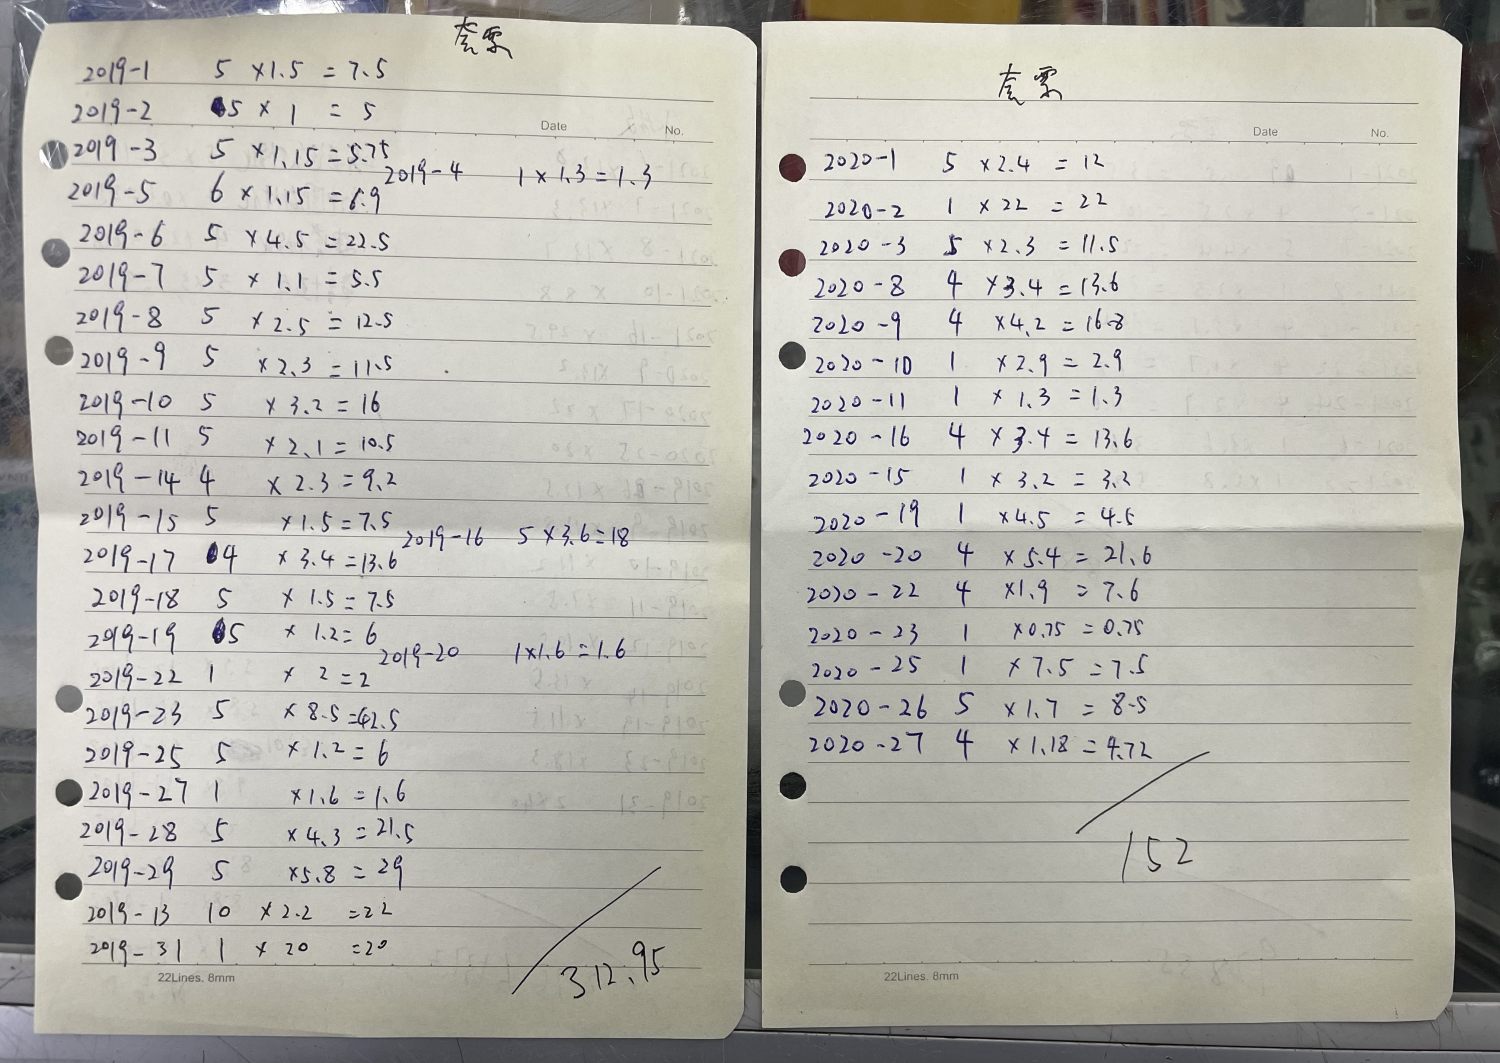 套票
2019-1 5 ×1.5 = 7.5
2019-2 5 × 1 = 5
Date No.
2019-3 5 ×1.15 = 5.75
2019-4 1×1.3 = 1.3
2019-5 6 ×1.15 = 6.9
2019-6 5 ×4.5 = 22.5
2019-7 5 × 1.1 = 5.5
2019-8 5 ×2.5 = 12.5
2019-9 5 ×2.3 = 11.5
2019-10 5 ×3.2 = 16
2019-11 5 ×2.1 = 10.5
2019-14 4 ×2.3 = 9.2
2019-15 5 ×1.5 = 7.5
2019-16 5×3.6 = 18
2019-17 4 ×3.4 = 13.6
2019-18 5 ×1.5 = 7.5
2019-19 5 ×1.2 = 6
2019-20 1×1.6 = 1.6
2019-22 1 × 2 = 2
2019-23 5 ×8.5 = 42.5
2019-25 5 ×1.2 = 6
2019-27 1 ×1.6 = 1.6
2019-28 5 ×4.3 = 21.5
2019-29 5 ×5.8 = 29
2019-13 10 ×2.2 = 22
2019-31 1 ×20 = 20
312.95
22Lines. 8mm
套票
Date No.
2020-1 5 ×2.4 = 12
2020-2 1 ×22 = 22
2020-3 5 ×2.3 = 11.5
2020-8 4 ×3.4 = 13.6
2020-9 4 ×4.2 = 16.8
2020-10 1 ×2.9 = 2.9
2020-11 1 ×1.3 = 1.3
2020-16 4 ×3.4 = 13.6
2020-15 1 ×3.2 = 3.2
2020-19 1 ×4.5 = 4.5
2020-20 4 ×5.4 = 21.6
2020-22 4 ×1.9 = 7.6
2020-23 1 ×0.75 = 0.75
2020-25 1 ×7.5 = 7.5
2020-26 5 ×1.7 = 8.5
2020-27 4 ×1.18 = 4.72
152
22Lines. 8mm